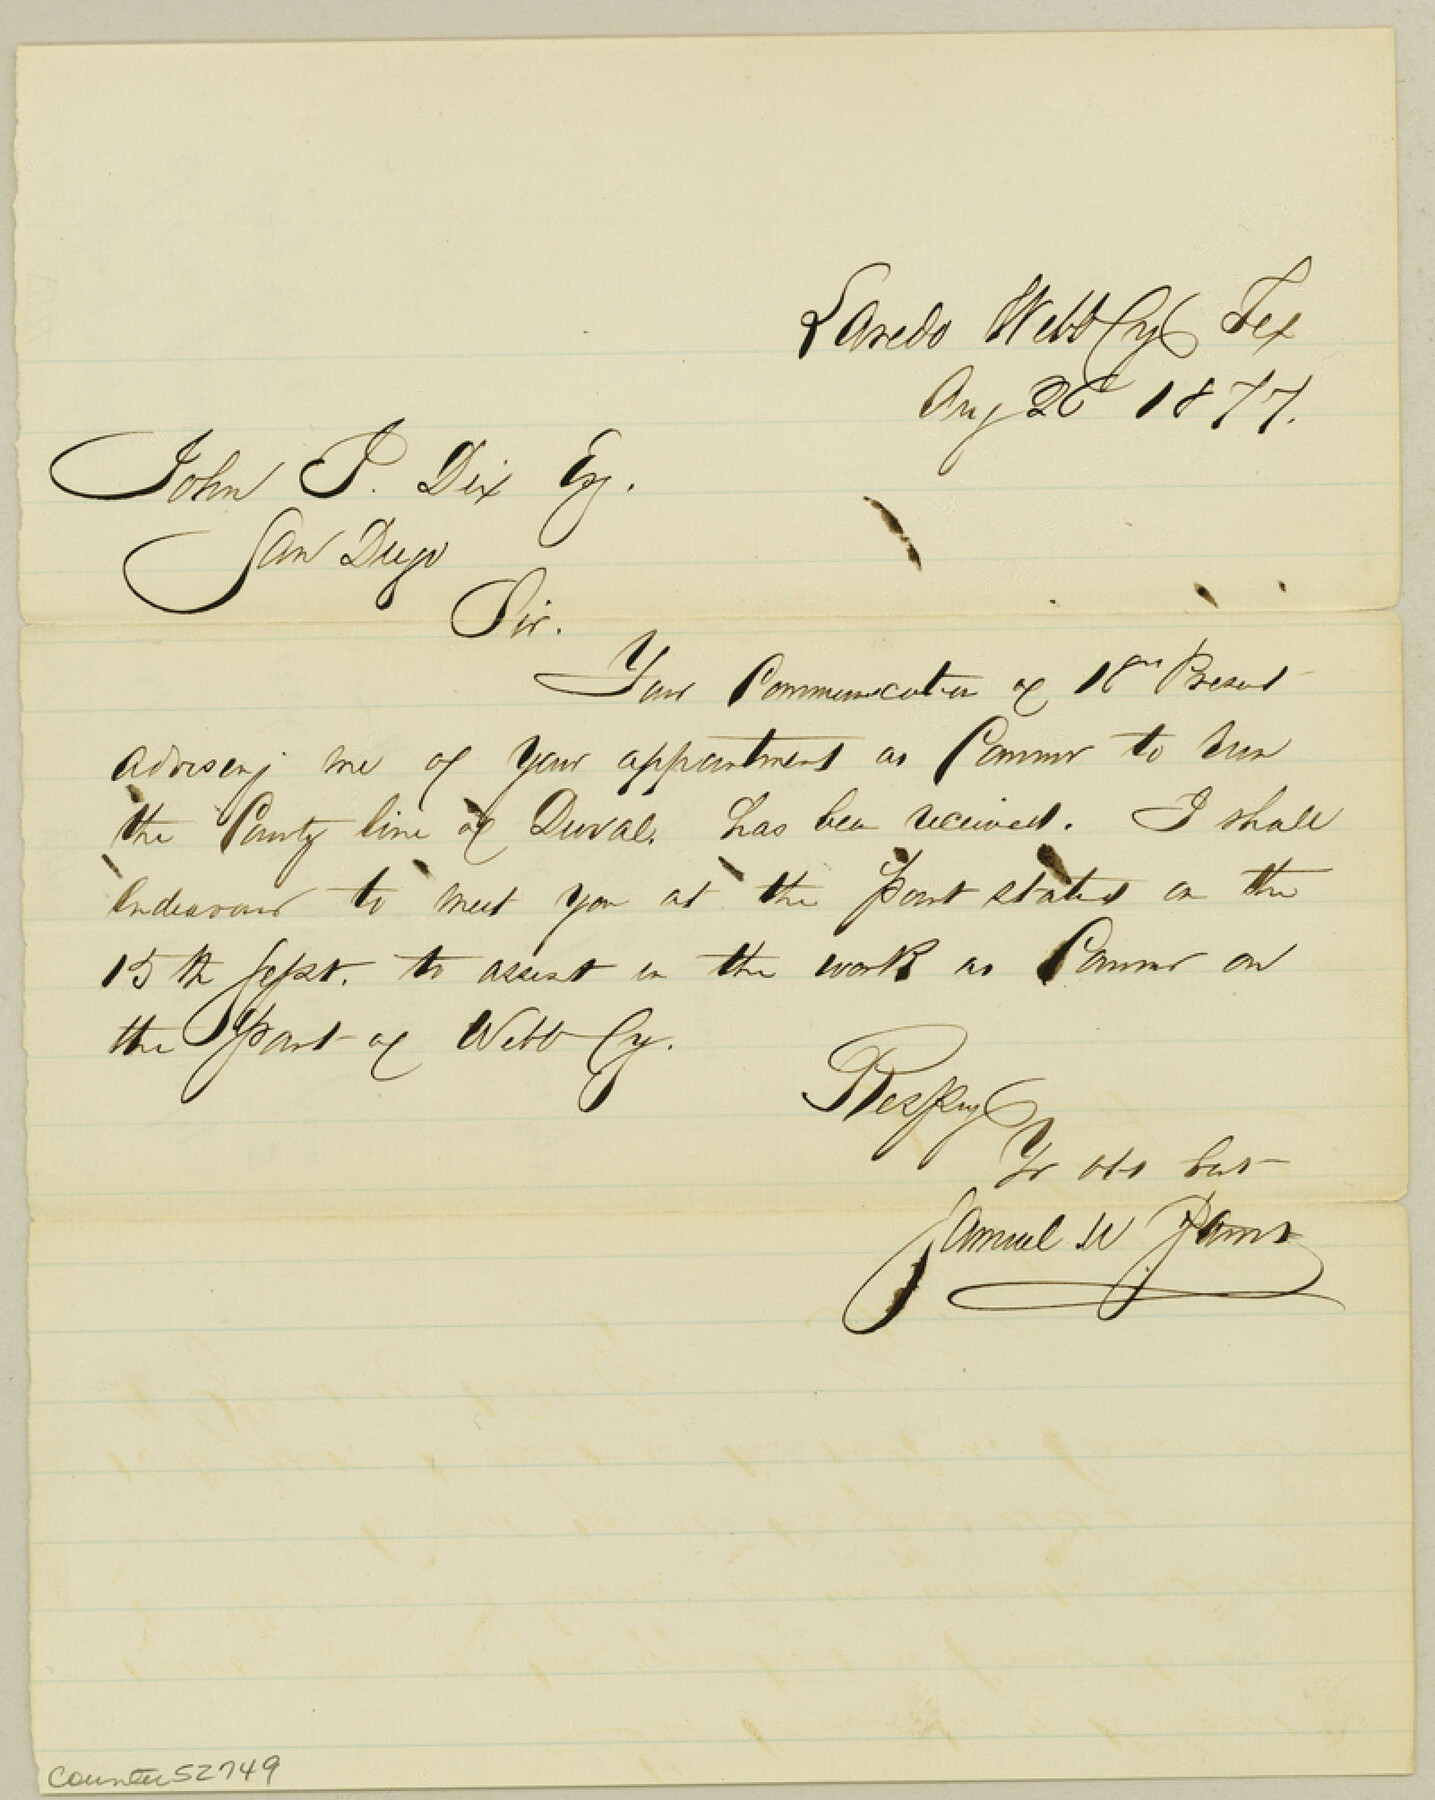 Laredo Webb Cy Tex
Aug 26 1877.
John J. Dix Esq.
San Diego
Sir.
Your Communication of 18th Present
advising me of your appointment as Commr to run
the County line of Duval. has been received. I shall
endeavour to meet you at the point stated on the
15th Sept. to assist in the work as Commr on
the part of Webb Cy.
Respy
Yr obt Svt
Samuel W
counter 52749